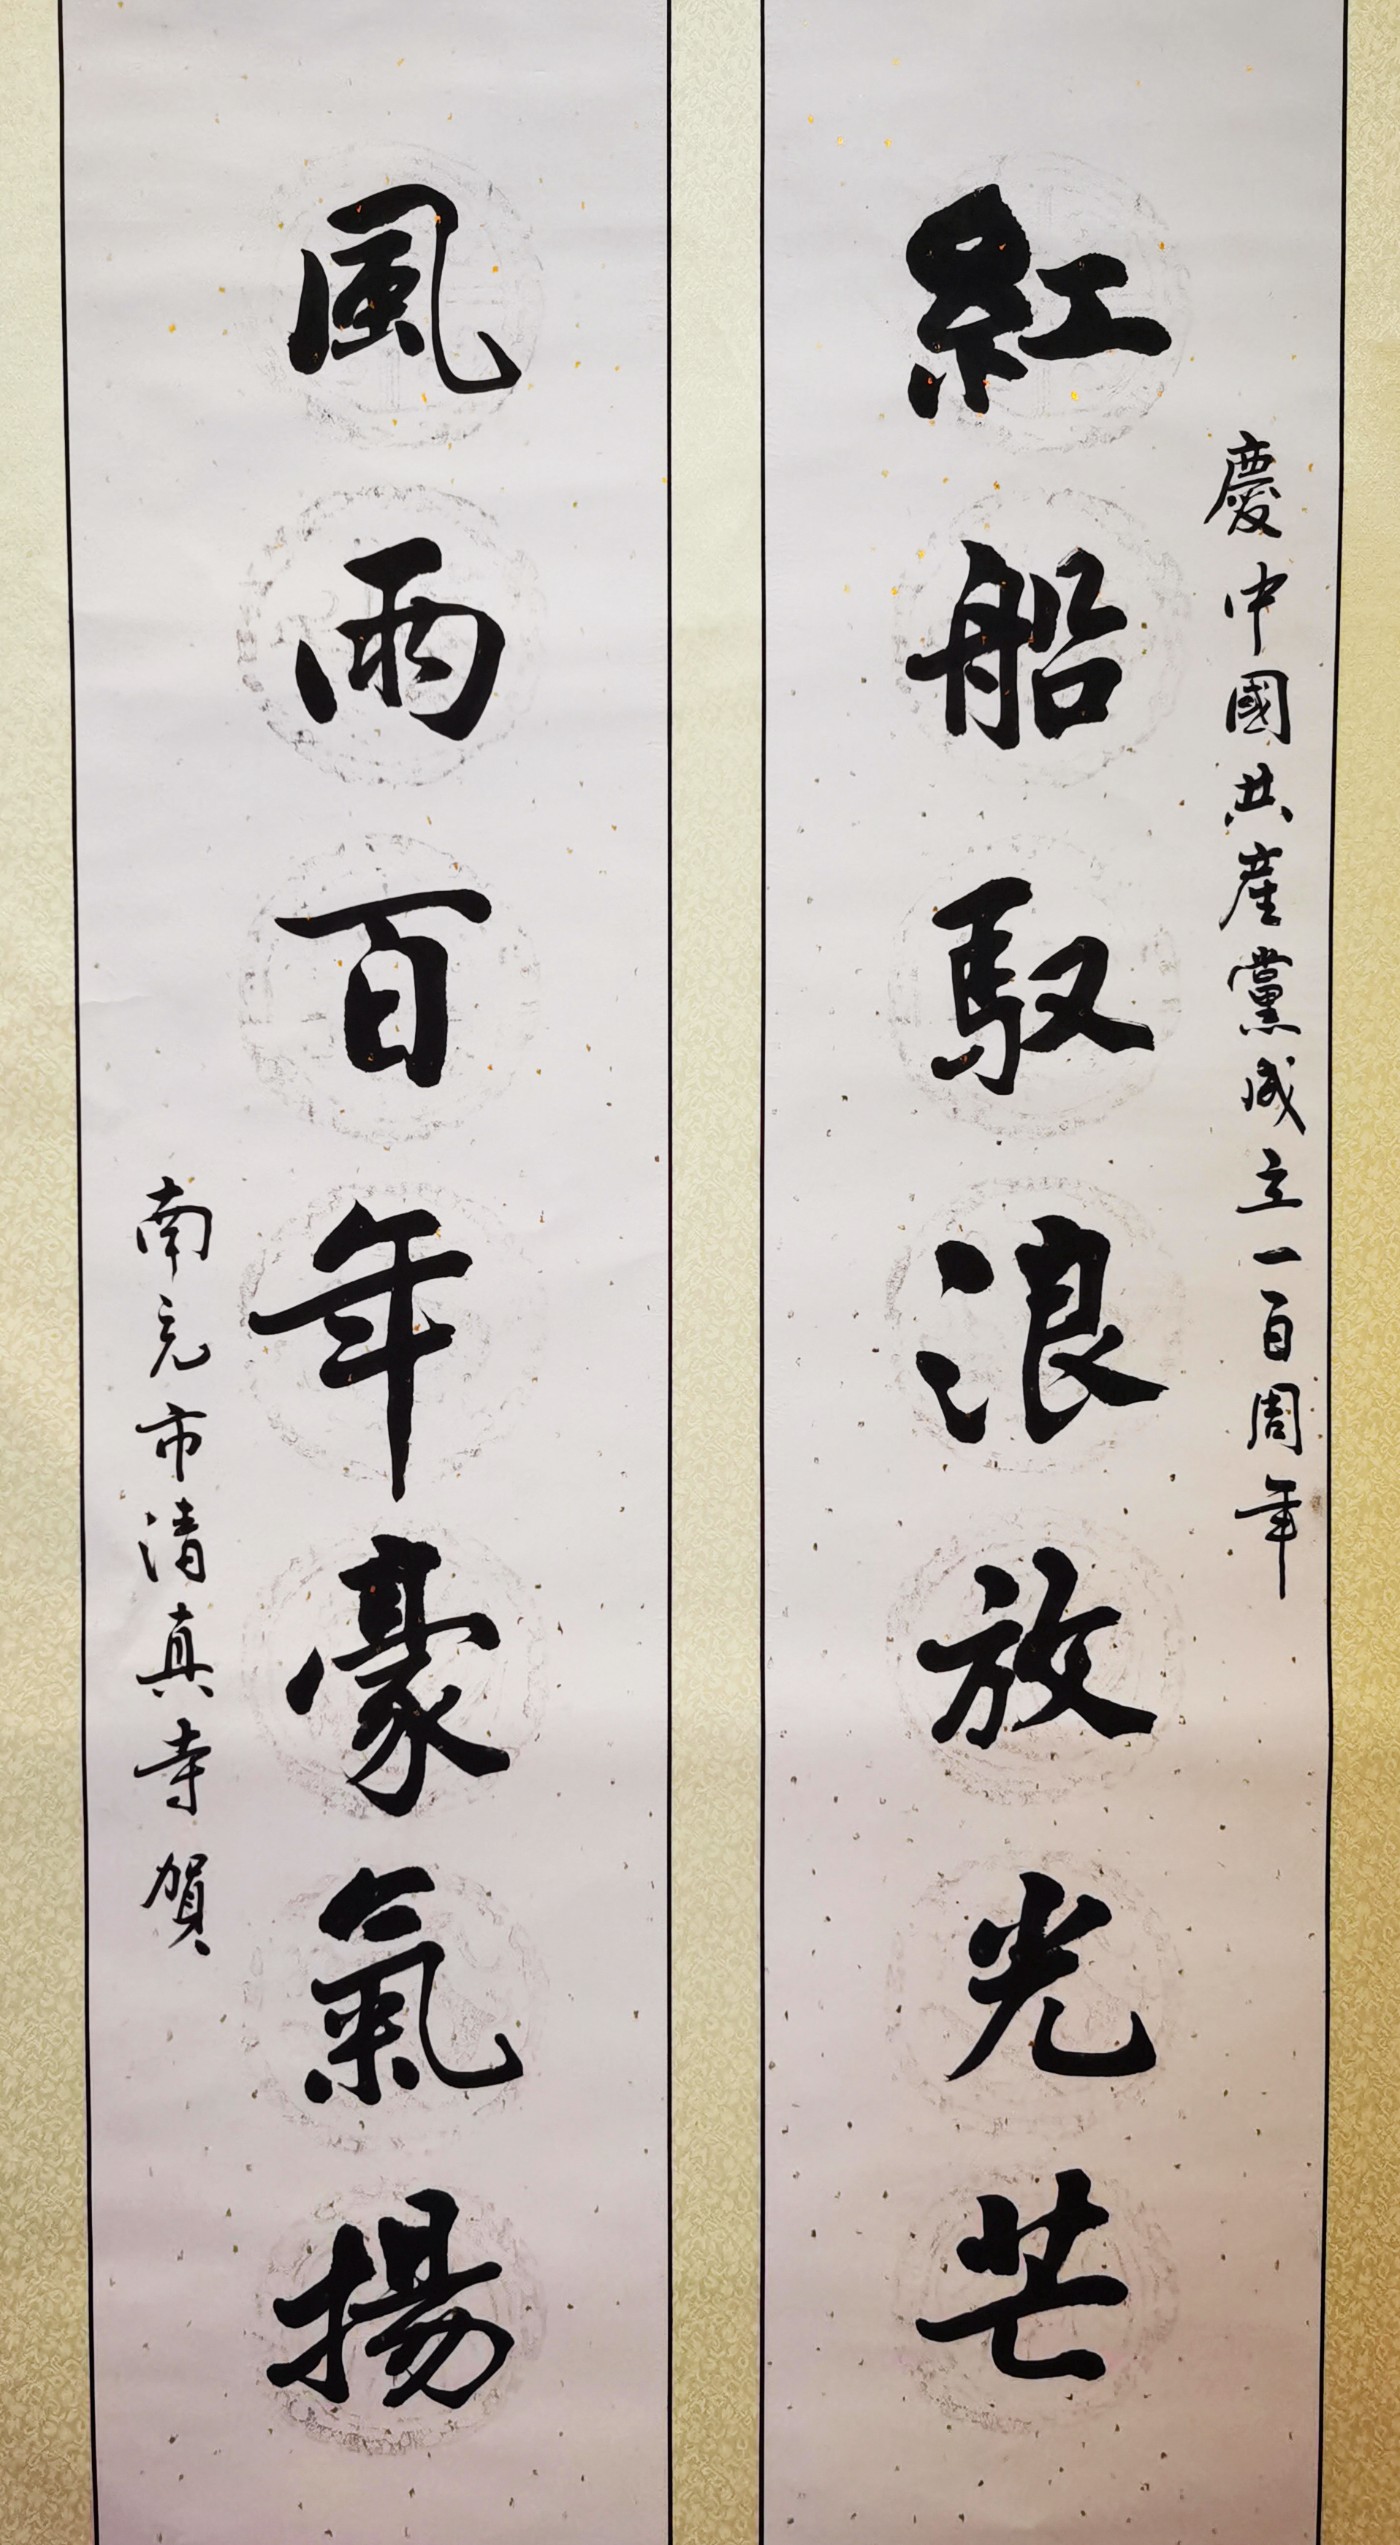 慶中國共產黨成立一百周年
紅船馭浪放光芒
風雨百年豪氣揚
南充市清真寺賀